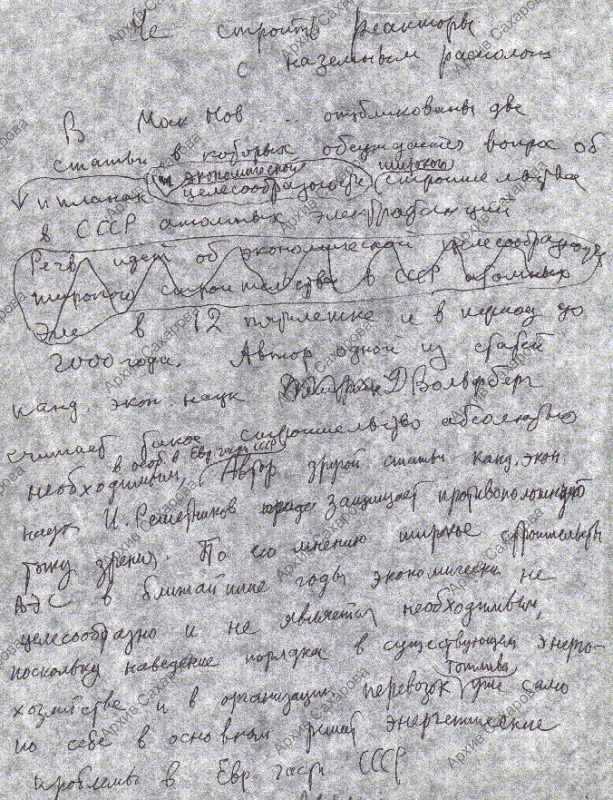 Не строить реакторы
с наземным располож
В Моск Нов... опубликованы две
статьи в которых обсуждается вопрос об
экономической широкого
и планах целесообразности строительства
в СССР атомных электростанций
Речь идет об экономической целесообразности
широкого строительства в СССР атомных
Эле в 12 пятилетке и в период до
2000 года. Автор одной из статей
канд. экон наук Д Вольфберг
считает такое строительство абсолютно
в особ. в Евр части СССР
необходимым, Автор другой статьи канд. экон
наук И. Решетников защищает противоположную
точку зрения. По его мнению широкое строительство
АЭС в ближайшие годы экономически не
целесообразно и не является необходимым,
поскольку наведение порядка в существующем энерго-
топлива
хозяйстве и в организации перевозок уже само
по себе в основном решит энергетические
проблемы в Евр части СССР
Архив Сахарова